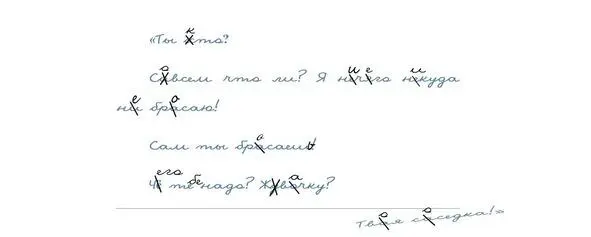 «Ты кто?
Совсем что ли? Я ничего никуда
не брасаю!
Сам ты брасаешь!
Чего тебе надо? Жвачку?
Твоя соседка!»